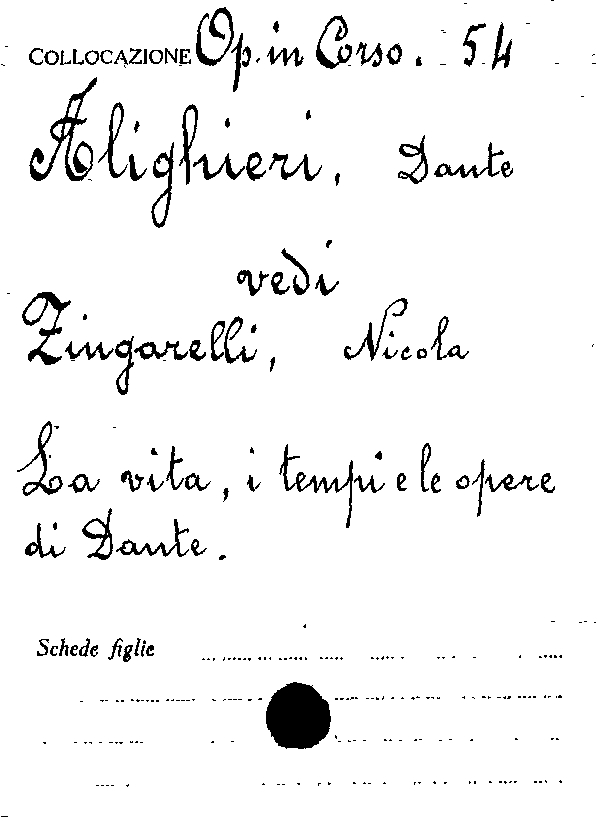 COLLOCAZIONE Op. in Corso. 54
Alighieri, Dante
vedi
Zingarelli, Nicola
La vita, i tempi e le opere
di Dante.
Schede figlie